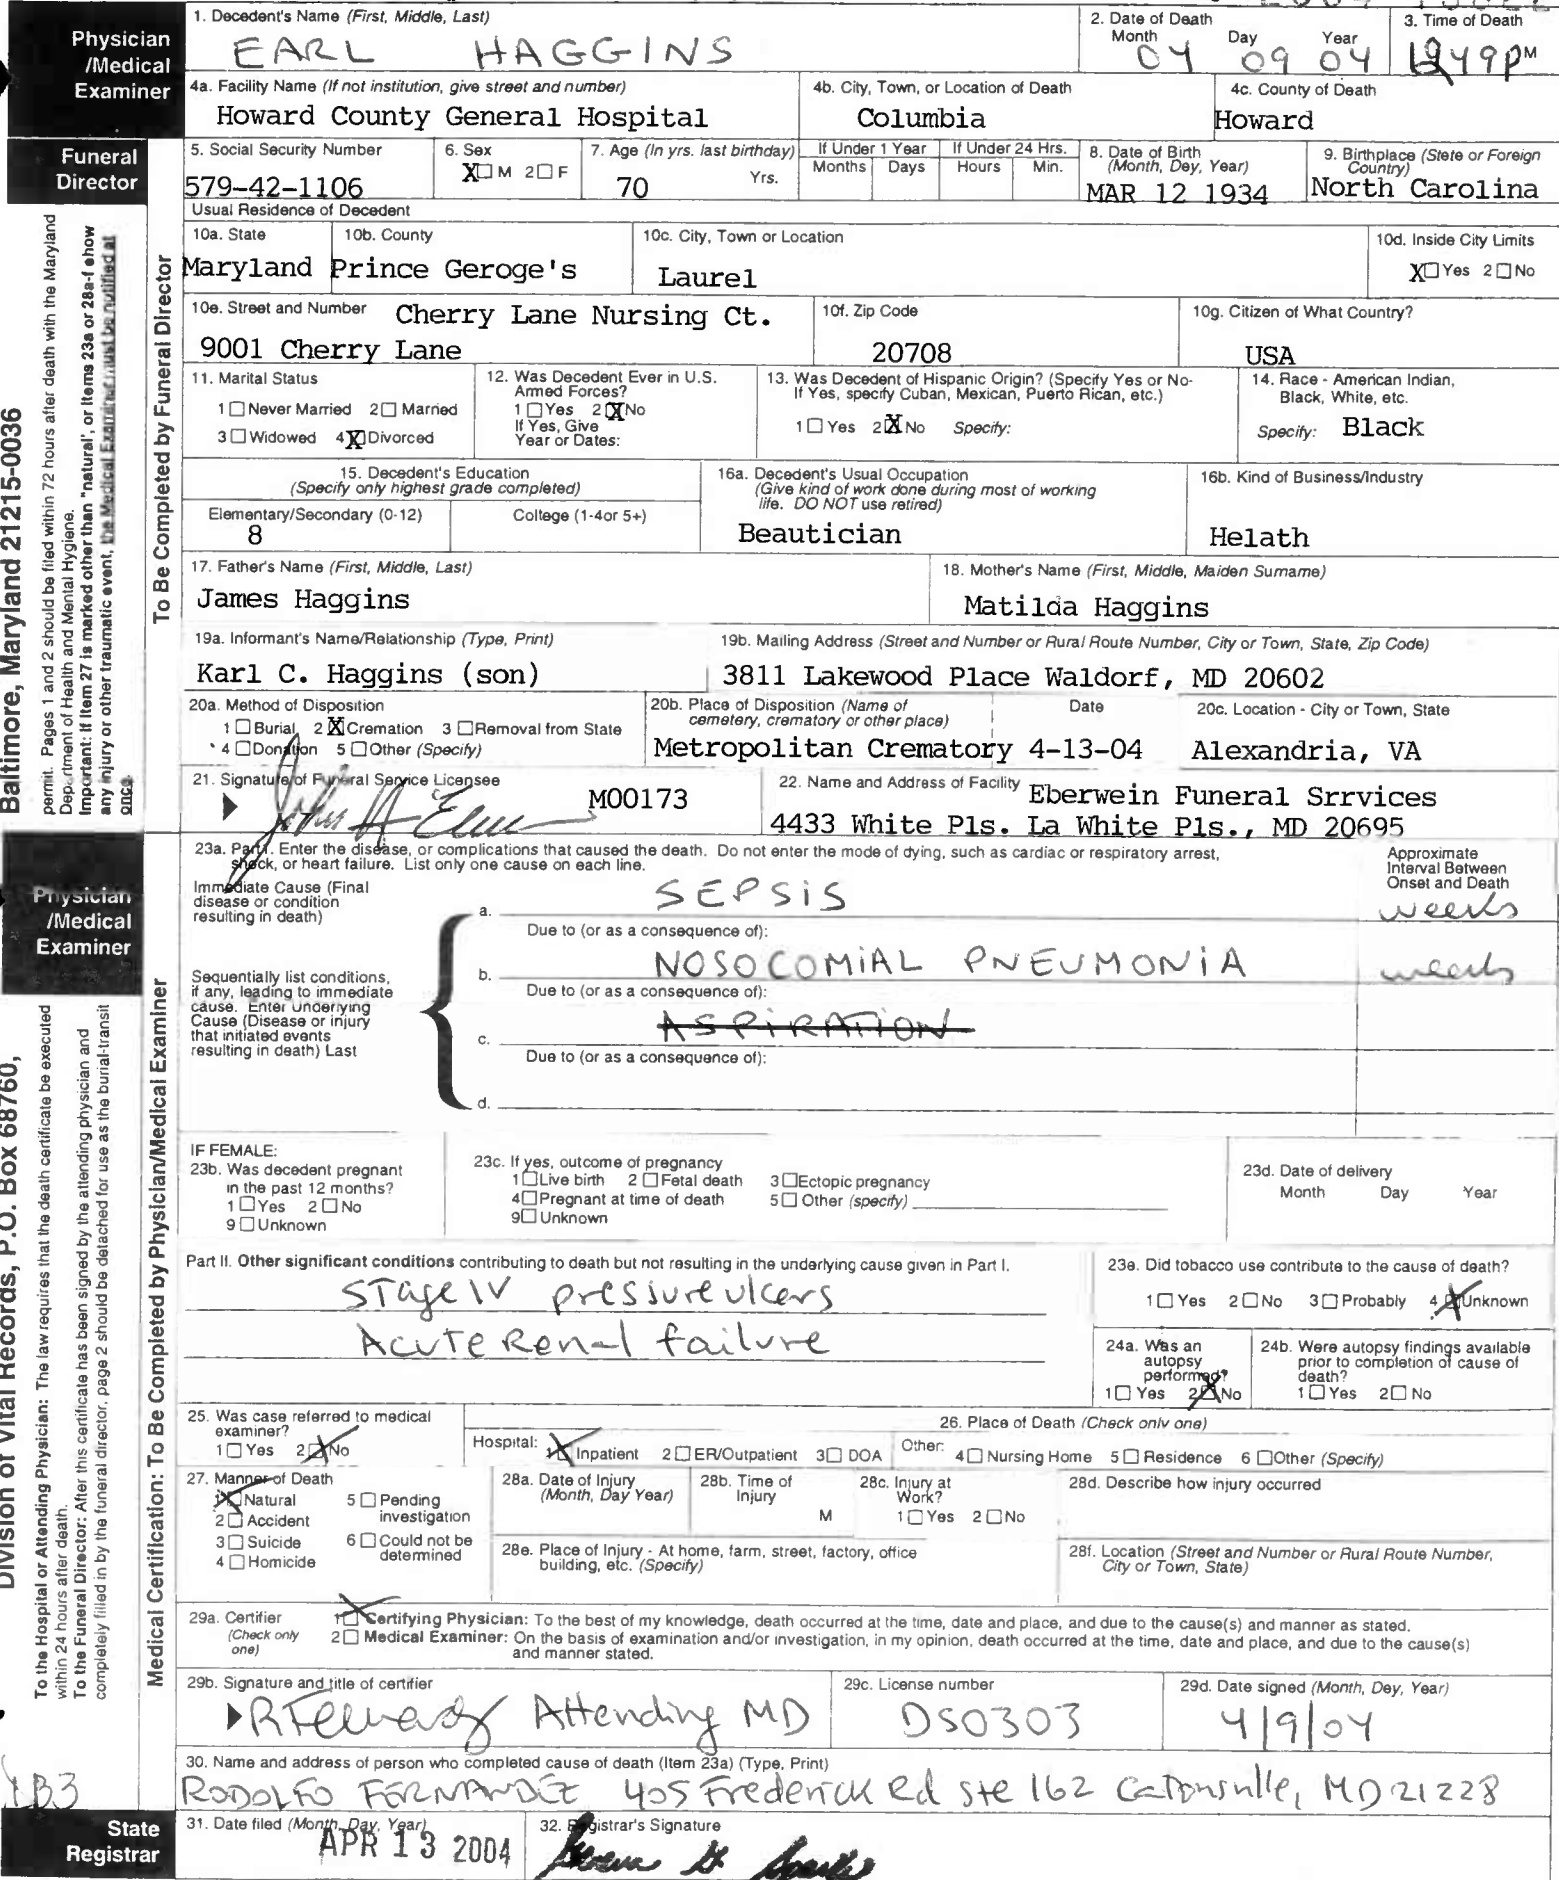 Physician
/Medical
Examiner
1. Decedent's Name (First, Middle, Last)
EARL HAGGINS
2. Date of Death
Month Day Year
04 09 04
3. Time of Death
49PM
4a. Facility Name (If not institution, give street and number)
Howard County General Hospital
4b. City, Town, or Location of Death
Columbia
4c. County of Death
Howard
Funeral
Director
5. Social Security Number
579-42-1106
6. Sex
X☐ M 2☐ F
7. Age (In yrs. last birthday)
70 Yrs.
If Under 1 Year
Months Days
If Under 24 Hrs.
Hours Min.
8. Date of Birth
(Month, Dey, Year)
MAR 12 1934
9. Birthplace (State or Foreign
Country)
North Carolina
Usual Residence of Decedent
10a. State
Maryland
10b. County
Prince Geroge's
10c. City, Town or Location
Laurel
10d. Inside City Limits
X☐ Yes 2☐ No
10e. Street and Number Cherry Lane Nursing Ct.
9001 Cherry Lane
10f. Zip Code
20708
10g. Citizen of What Country?
USA
11. Marital Status
1☐ Never Married 2☐ Married
3☐ Widowed 4X Divorced
12. Was Decedent Ever in U.S.
Armed Forces?
1☐ Yes 2X No
If Yes, Give
Year or Dates:
13. Was Decedent of Hispanic Origin? (Specify Yes or No-
If Yes, specify Cuban, Mexican, Puerto Rican, etc.)
1☐ Yes 2X No Specify:
14. Race - American Indian,
Black, White, etc.
Specify: Black
15. Decedent's Education
(Specify only highest grade completed)
Elementary/Secondary (0-12) College (1-4or 5+)
8
16a. Decedent's Usual Occupation
(Give kind of work done during most of working
life. DO NOT use retired)
Beautician
16b. Kind of Business/Industry
Helath
17. Father's Name (First, Middle, Last)
James Haggins
18. Mother's Name (First, Middle, Maiden Surname)
Matilda Haggins
19a. Informant's Name/Relationship (Type, Print)
Karl C. Haggins (son)
19b. Mailing Address (Street and Number or Rural Route Number, City or Town, State, Zip Code)
3811 Lakewood Place Waldorf, MD 20602
20a. Method of Disposition
1☐ Burial 2X Cremation 3☐ Removal from State
4☐ Donation 5☐ Other (Specify)
20b. Place of Disposition (Name of
cemetery, crematory or other place)
Date
Metropolitan Crematory 4-13-04
20c. Location - City or Town, State
Alexandria, VA
21. Signature of Funeral Service Licensee
M00173
22. Name and Address of Facility Eberwein Funeral Srrvices
4433 White Pls. La White Pls., MD 20695
To Be Completed by Funeral Director
Baltimore, Maryland 21215-0036
permit. Pages 1 and 2 should be filed within 72 hours after death with the Maryland
Department of Health and Mental Hygiene.
Important: If Item 27 is marked other than "natural", or Items 23a or 28a-f show
any injury or other traumatic event, the Medical Examiner must be notified at
once.
Physician
/Medical
Examiner
23a. Part I. Enter the disease, or complications that caused the death. Do not enter the mode of dying, such as cardiac or respiratory arrest,
shock, or heart failure. List only one cause on each line.
Approximate
Interval Between
Onset and Death
Immediate Cause (Final
disease or condition
resulting in death)
a. SEPSIS weeks
Due to (or as a consequence of):
Sequentially list conditions,
if any, leading to immediate
cause. Enter Underlying
Cause (Disease or injury
that initiated events
resulting in death) Last
b. NOSOCOMIAL PNEUMONIA weeks
Due to (or as a consequence of):
c. ASPIRATION
Due to (or as a consequence of):
d.
IF FEMALE:
23b. Was decedent pregnant
in the past 12 months?
1☐ Yes 2☐ No
9☐ Unknown
23c. If yes, outcome of pregnancy
1☐ Live birth 2☐ Fetal death 3☐ Ectopic pregnancy
4☐ Pregnant at time of death 5☐ Other (specify)
9☐ Unknown
23d. Date of delivery
Month Day Year
Part II. Other significant conditions contributing to death but not resulting in the underlying cause given in Part I.
Stage IV pressure ulcers
Acute Renal failure
23e. Did tobacco use contribute to the cause of death?
1☐ Yes 2☐ No 3☐ Probably 4X Unknown
24a. Was an
autopsy
performed?
1☐ Yes 2X No
24b. Were autopsy findings available
prior to completion of cause of
death?
1☐ Yes 2☐ No
25. Was case referred to medical
examiner?
1☐ Yes 2X No
26. Place of Death (Check only one)
Hospital: 1X Inpatient 2☐ ER/Outpatient 3☐ DOA Other: 4☐ Nursing Home 5☐ Residence 6☐ Other (Specify)
27. Manner of Death
1X Natural 5☐ Pending
investigation
2☐ Accident
3☐ Suicide 6☐ Could not be
determined
4☐ Homicide
28a. Date of Injury
(Month, Day Year)
28b. Time of
Injury
M
28c. Injury at
Work?
1☐ Yes 2☐ No
28d. Describe how injury occurred
28e. Place of Injury - At home, farm, street, factory, office
building, etc. (Specify)
28f. Location (Street and Number or Rural Route Number,
City or Town, State)
29a. Certifier
(Check only
one)
1X Certifying Physician: To the best of my knowledge, death occurred at the time, date and place, and due to the cause(s) and manner as stated.
2☐ Medical Examiner: On the basis of examination and/or investigation, in my opinion, death occurred at the time, date and place, and due to the cause(s)
and manner stated.
29b. Signature and title of certifier
Attending MD
29c. License number
D50303
29d. Date signed (Month, Dey, Year)
4/9/04
30. Name and address of person who completed cause of death (Item 23a) (Type, Print)
RODOLFO FERNANDEZ 405 Frederick Rd Ste 162 Catonsville, MD 21228
Medical Certification: To Be Completed by Physician/Medical Examiner
Division of Vital Records, P.O. Box 68760,
To the Hospital or Attending Physician: The law requires that the death certificate be executed
within 24 hours after death.
To the Funeral Director: After this certificate has been signed by the attending physician and
completely filled in by the funeral director, page 2 should be detached for use as the burial-transit
State
Registrar
31. Date filed (Month, Day, Year)
APR 13 2004
32. Registrar's Signature